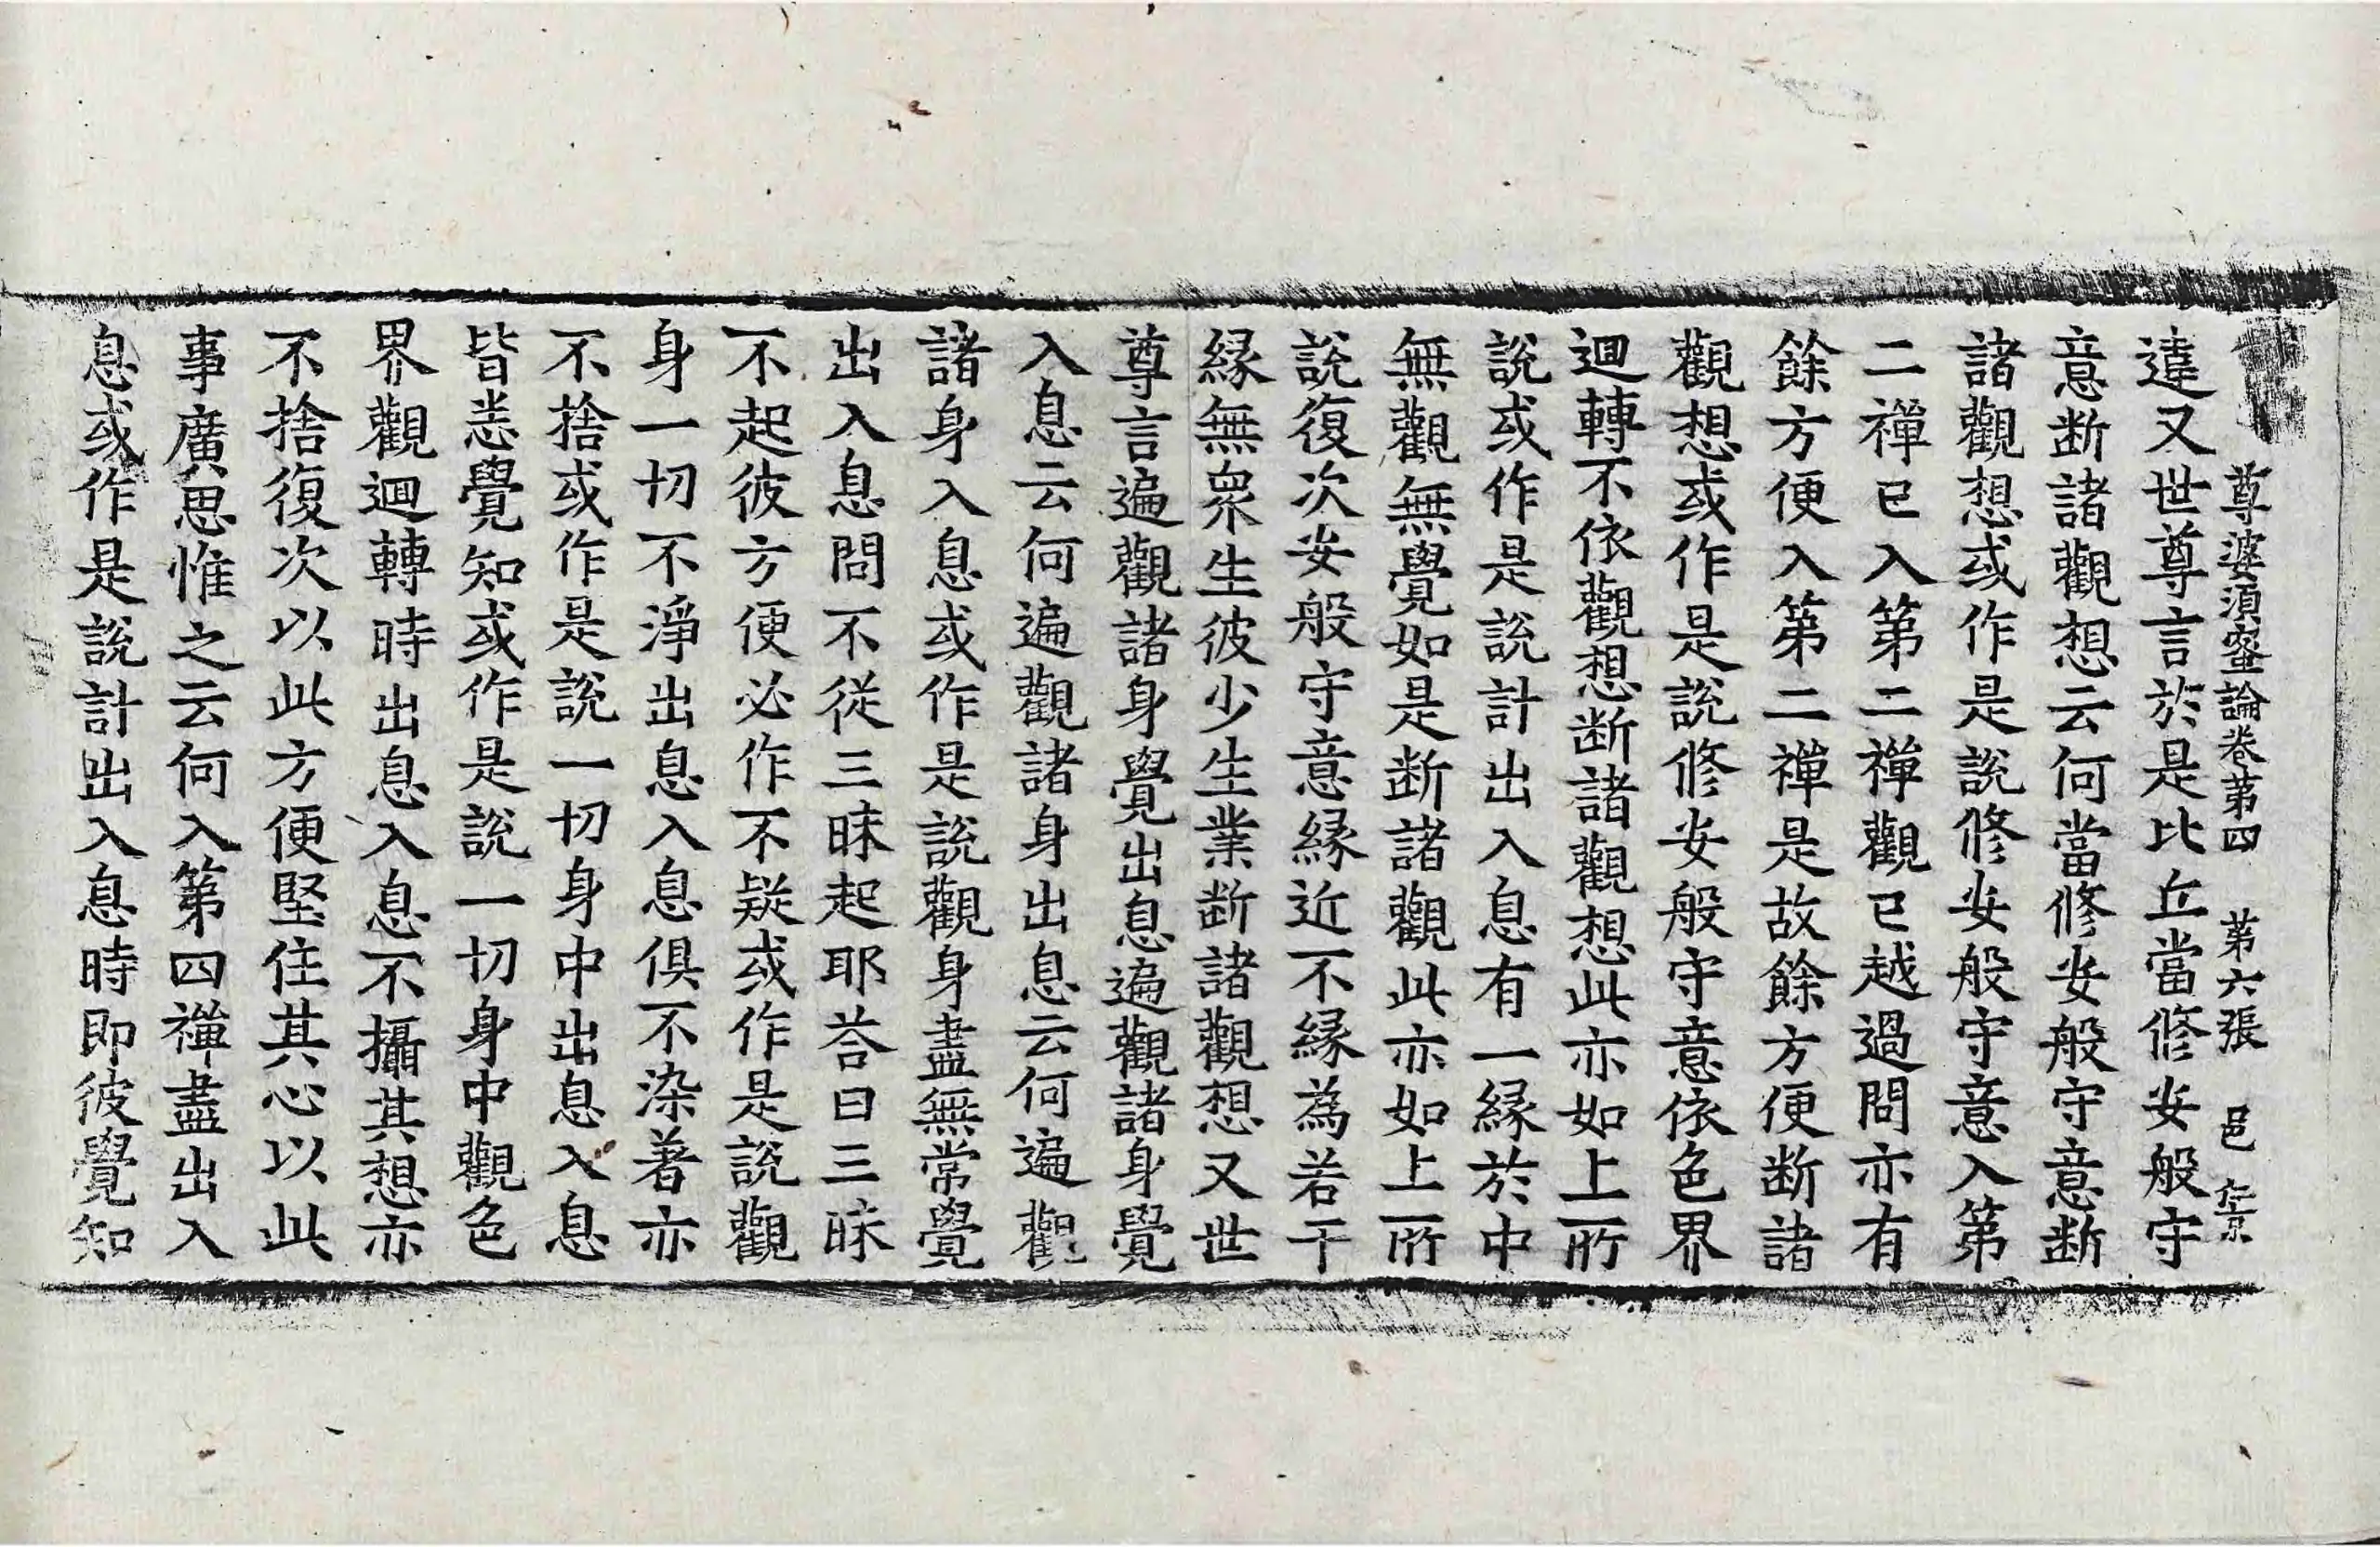 尊婆須蜜論卷第四 第六張 邑
違又世尊言於是比丘當修安般守
意断諸觀想云何當修安般守意断
諸觀想或作是說修安般守意入第
二禪已入第二禪觀已越過問亦有
餘方便入第二禪是故餘方便断諸
觀想或作是說修安般守意依色界
迴轉不依觀想断諸觀想此亦如上所
說或作是說計出入息有一緣於中
無觀無覺如是断諸觀此亦如上所
說復次安般守意緣近不緣為若干
緣無衆生彼少生業断諸觀想又世
尊言遍觀諸身覺出息遍觀諸身覺
入息云何遍觀諸身出息云何遍觀
諸身入息或作是說觀身盡無常覺
出入息問不從三昧起耶荅曰三昧
不起彼方便必作不疑或作是說觀
身一切不淨出息入息俱不染著亦
不捨或作是說一切身中出息入息
皆悉覺知或作是說一切身中觀色
界觀迴轉時出息入息不攝其想亦
不捨復次以此方便堅住其心以此
事廣思惟之云何入第四禪盡出入
息或作是說計出入息時即彼覺知